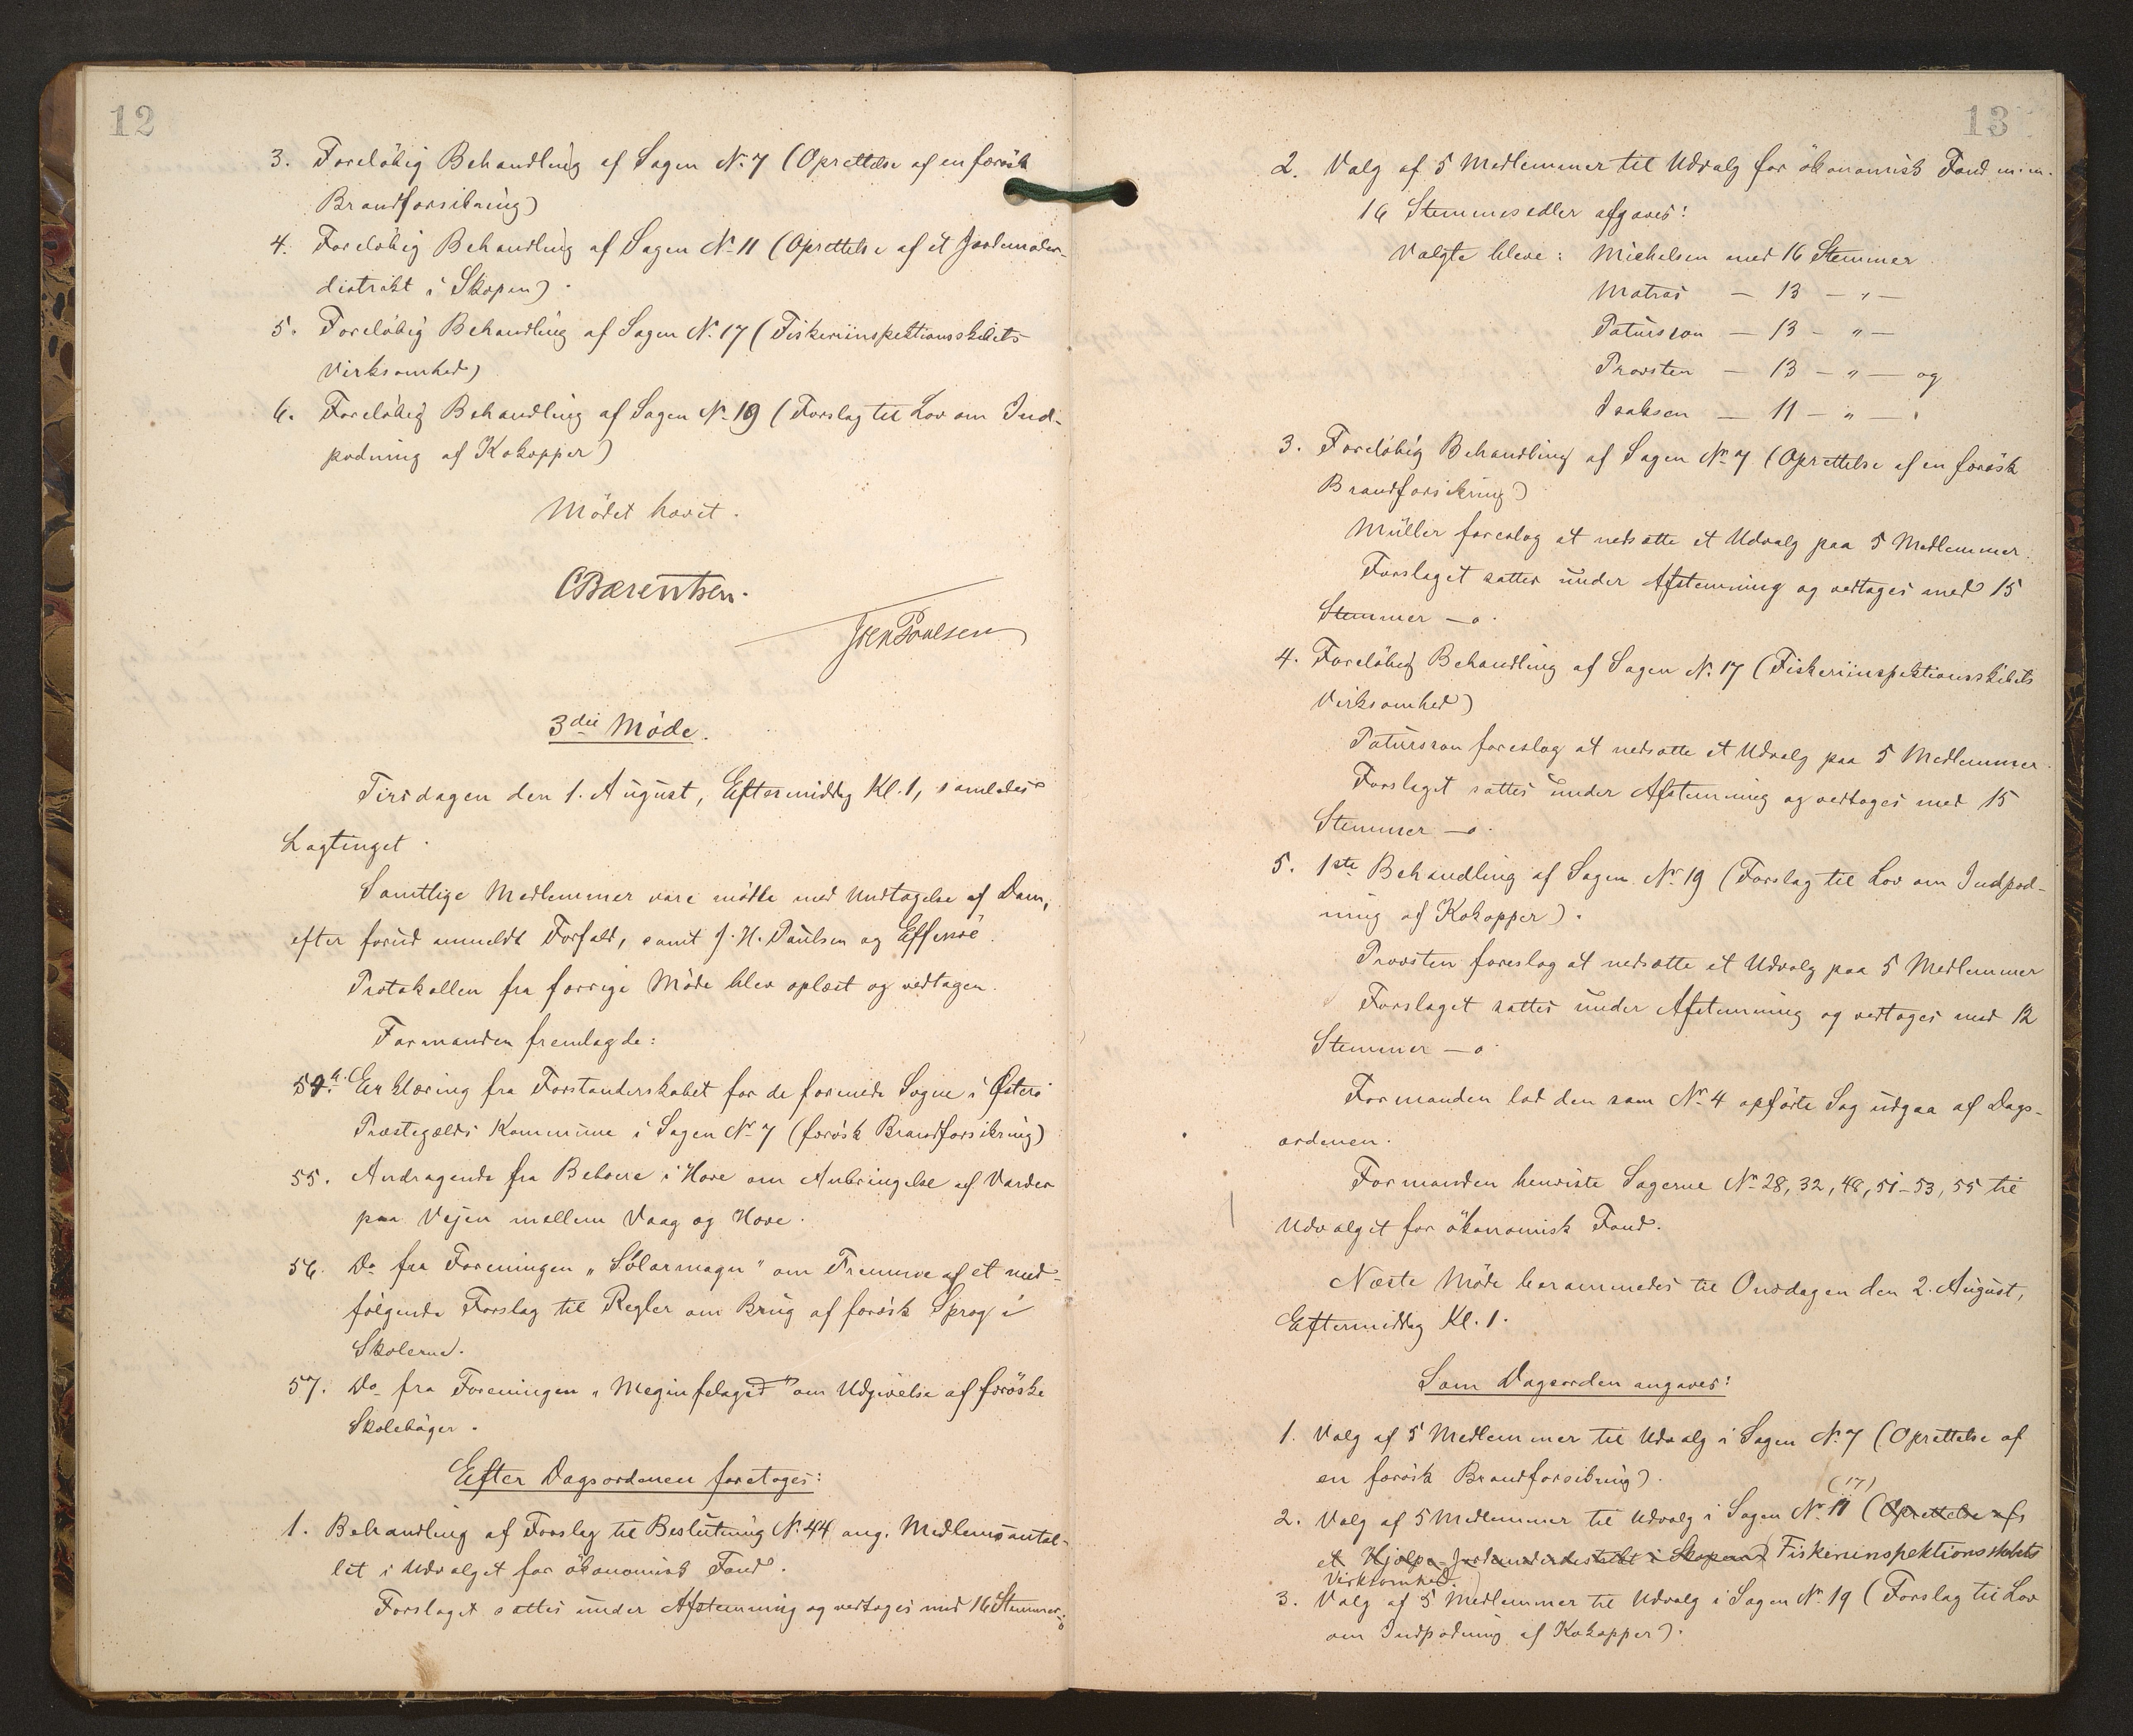 12
3. Foreløbig Behandling af Sagen No 7 (Oprettelse af en færøsk
Brandforsikring)
4. Foreløbig Behandling af Sagen No 11 (Oprettelse af et Jordemoder-
distrikt i Skopen).
5. Foreløbig Behandling af Sagen No 17 (Fiskeriinspektionsskibets
Virksomhed)
6. Foreløbig Behandling af Sagen No 19 (Forslag til Lov om Ind-
podning af Kokopper)
Mødet hævet.
CBærentsen.
Joen Poulsen
3die Møde.
Tirsdagen den 1. August, Eftermiddag Kl. 1, samledes
Lagtinget.
Samtlige Medlemmer vare mødte med Undtagelse af Dam,
efter forud anmeldt Forfald, samt J. H. Paulsen og Effersøe.
Protokollen fra forrige Møde blev oplæst og vedtagen.
Formanden fremlagde:
54. Erklæring fra Forstanderskabet for de forenede Sogne i Østerø
Præstegælds Kommune i Sagen No 7 (færøsk Brandforsikring)
55. Andragende fra Beboere i Hove om Anbringelse af Varder
paa Vejen mellem Vaag og Hove.
56. Do fra Foreningen „Sólarmagn" om Fremme af et med-
følgende Forslag til Regler om Brug af færøsk Sprog i
Skolerne.
57. Do fra Foreningen „Meginfelagið" om Udgivelse af færøske
Skolebøger.
Efter Dagsordenen foretoges:
1. Behandling af Forslag til Beslutning No 44 ang. Medlemsantal-
let i Udvalget for økonomisk Fond.
Forslaget sattes under Afstemning og vedtoges med 16 Stemmer:0
13
2. Valg af 5 Medlemmer til Udvalg for økonomisk Fond m.m.
16 Stemmesedler afgaves:
Valgte bleve: Michelsen med 16 Stemmer
Matras — 13 — „ —
Patursson — 13 — „ —
Provsten — 13 — „ — og
Isaksen — 11 — „ — .
3. Foreløbig Behandling af Sagen No 7 (Oprettelse af en færøsk
Brandforsikring)
Müller foreslog at nedsætte et Udvalg paa 5 Medlemmer.
Forslaget sattes under Afstemning og vedtoges med 15
Stemmer — 0.
4. Foreløbig Behandling af Sagen No 17 (Fiskeriinspektionsskibets
Virksomhed)
Patursson foreslog at nedsætte et Udvalg paa 5 Medlemmer.
Forslaget sattes under Afstemning og vedtoges med 15
Stemmer — 0.
5. 1ste Behandling af Sagen No 19 (Forslag til Lov om Indpod-
ning af Kokopper).
Provsten foreslog at nedsætte et Udvalg paa 5 Medlemmer
Forslaget sattes under Afstemning og vedtoges med 12
Stemmer — 0
Formanden lod den som No 4 opførte Sag udgaa af Dags-
ordenen.
Formanden henviste Sagerne No 28, 32, 48, 51-53, 55 til
Udvalget for økonomisk Fond.
Næste Møde berammedes til Onsdagen den 2. August,
Eftermiddag Kl. 1.
Som Dagsorden angaves:
1. Valg af 5 Medlemmer til Udvalg i Sagen No 7 (Oprettelse af
en færøsk Brandforsikring).
(17)
2. Valg af 5 Medlemmer til Udvalg i Sagen No 11 (Oprettelse af
et Hjælpe-Jordemoderdistrikt i Skopen) Fiskeriinspektionsskibets
Virksomhed.)
3. Valg af 5 Medlemmer til Udvalg i Sagen No 19 (Forslag til Lov
om Indpodning af Kokopper).